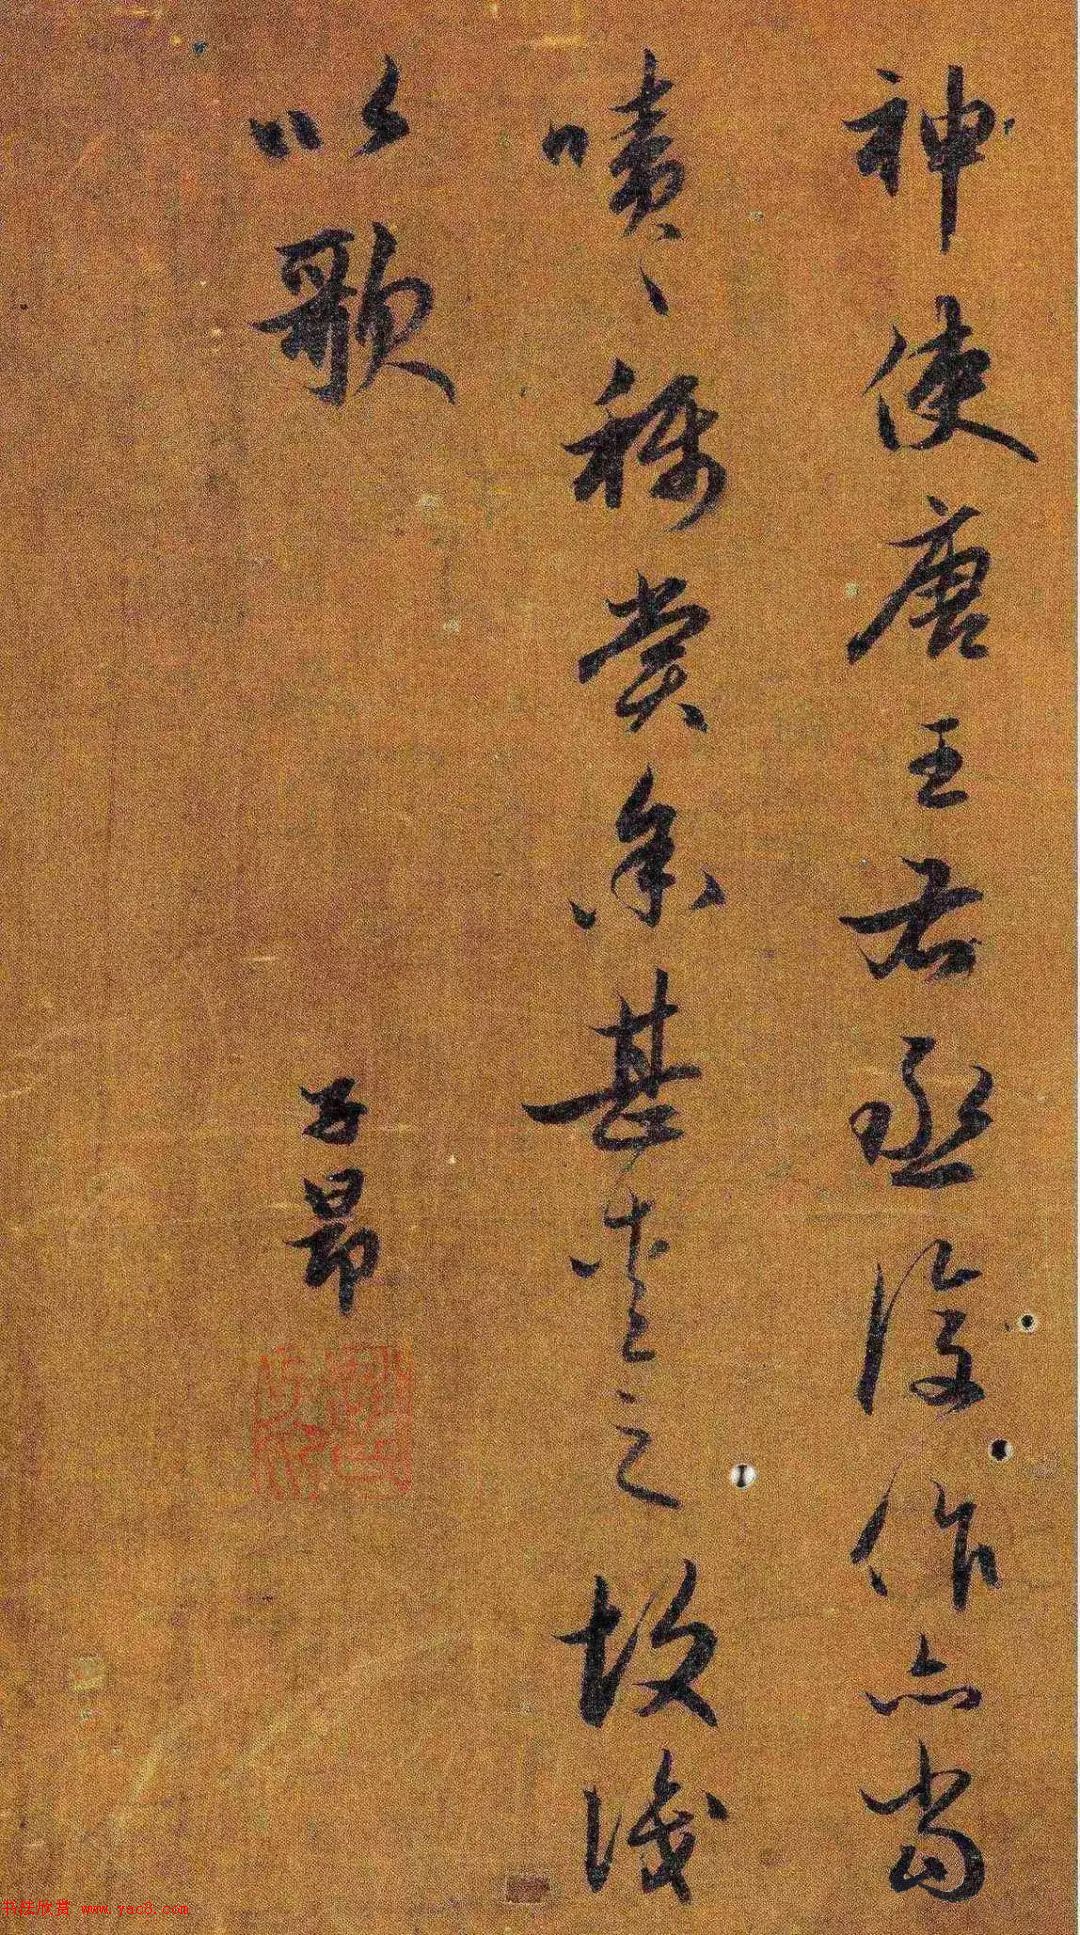 神使唐王右丞復作亦當
嘖〻稱賞余甚愛之故識
以歌
子昂
书法欣赏 www.yac8.com